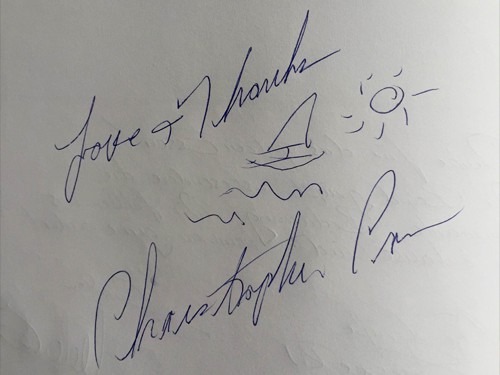 Love & Thanks
Christopher